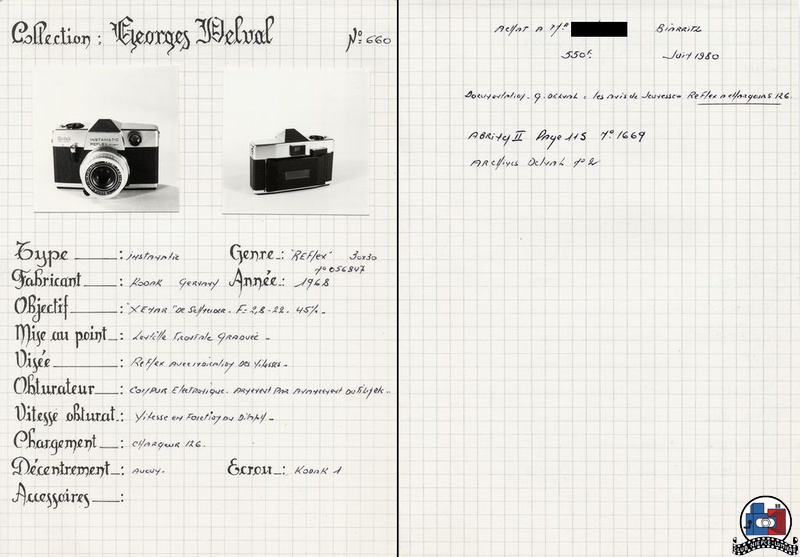 Collection : Georges Delval No 660
INSTAMATIC
REFLEX
Type : instamatic Genre : "REFLEX" 30x30
no 056847
Fabricant : KODAK GERMANY Année : 1968
Objectif : "XENAR" DE Schneider. F= 2,8-22. 45m/m
Mise au point : Lentille Frontale GRADUÉE
Visée : Reflex avec indication des vitesses
Obturateur : COMPUR Electronique. Armement par avancement du Film etc.
Vitesse obturat : Vitesse en Fonction du Diaph
Chargement : CHARGEUR 126.
Décentrement : AUCUN. Ecrou : KODAK 1
Accessoires :
ACHAT A Mr BIARRITZ
550F. Juin 1980
Documentation. G. DELVAL : les amis de Jeunesse Reflex a chargeurs 126.
ABRING II Page 115 No 1669
ARCHIVES Delval no 2